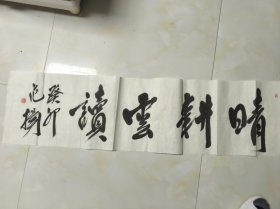 晴耕雲讀
癸卯